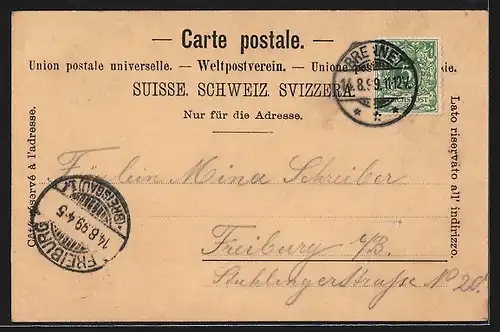 — Carte postale. —
Union postale universelle. — Weltpostverein. — Unione
SUISSE. SCHWEIZ. SVIZZERA.
Nur für die Adresse.
Côté réservé à l'adresse.
Lato riservato all' indirizzo.
BRENNET
14.8.99.11-12V.
REICHSPOST
Fräulein Mina Schreiber
Freiburg i/B.
Stühlingerstraße No 20.
FREIBURG
14.8.99.4-5
(BREISGAU)